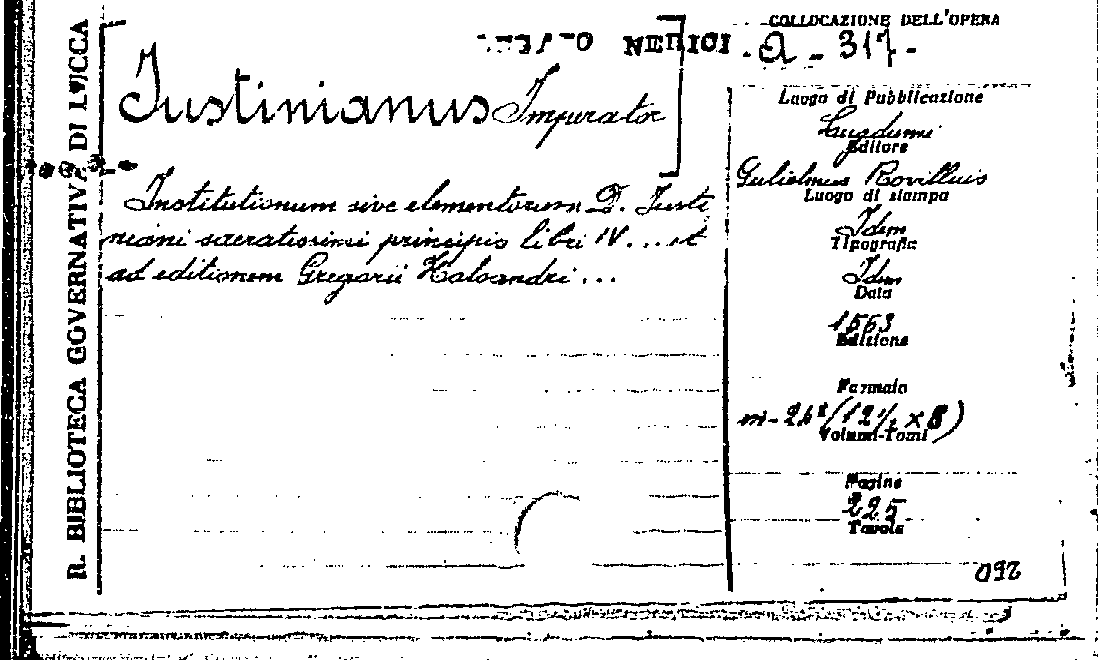 R. BIBLIOTECA GOVERNATIVA DI LUCCA
NERICI
COLLOCAZIONE DELL'OPERA
Q - 317 -
[Iustinianus Imperator]
Institutionum sive elementorum D. Justi
niani sacratissimi principis libri IV.... et
ad editionem Gregorii Haloandri ...
Luogo di Pubblicazione
Lugduni
Editore
Gulielmus Rovillius
Luogo di stampa
Idem
Tipografia
Idem
Data
1563
Edizione
Formato
(12½ x 8)
Volumi-Tomi
Pagine
225
Tavole